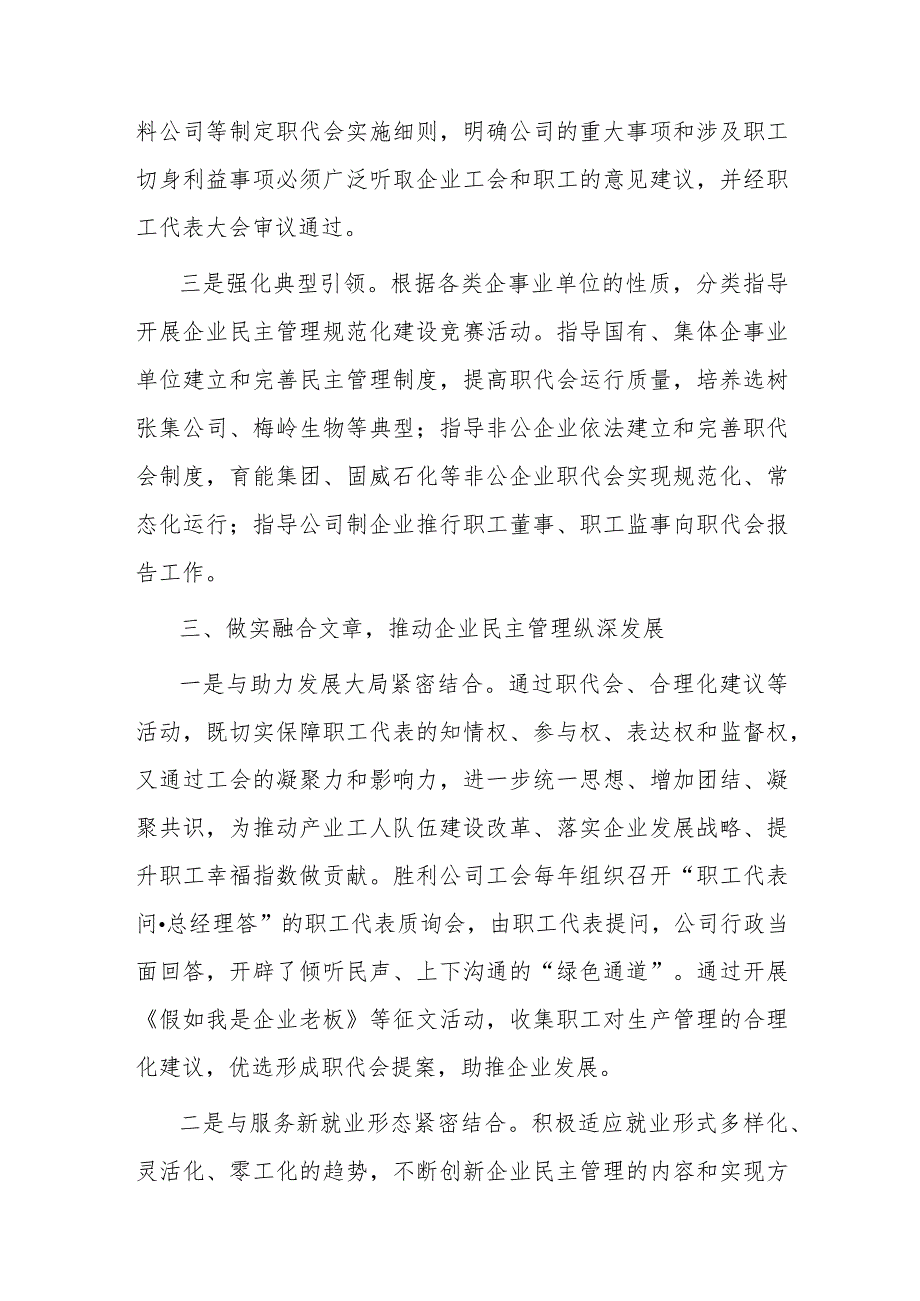 料公司等制定职代会实施细则，明确公司的重大事项和涉及职工
切身利益事项必须广泛听取企业工会和职工的意见建议，并经职
工代表大会审议通过。
三是强化典型引领。根据各类企事业单位的性质，分类指导
开展企业民主管理规范化建设竞赛活动。指导国有、集体企事业
单位建立和完善民主管理制度，提高职代会运行质量，培养选树
张集公司、梅岭生物等典型；指导非公企业依法建立和完善职代
会制度，育能集团、固威石化等非公企业职代会实现规范化、常
态化运行；指导公司制企业推行职工董事、职工监事向职代会报
告工作。
三、做实融合文章，推动企业民主管理纵深发展
一是与助力发展大局紧密结合。通过职代会、合理化建议等
活动，既切实保障职工代表的知情权、参与权、表达权和监督权，
又通过工会的凝聚力和影响力，进一步统一思想、增加团结、凝
聚共识，为推动产业工人队伍建设改革、落实企业发展战略、提
升职工幸福指数做贡献。胜利公司工会每年组织召开“职工代表
问•总经理答”的职工代表质询会，由职工代表提问，公司行政当
面回答，开辟了倾听民声、上下沟通的“绿色通道”。通过开展
《假如我是企业老板》等征文活动，收集职工对生产管理的合理
化建议，优选形成职代会提案，助推企业发展。
二是与服务新就业形态紧密结合。积极适应就业形式多样化、
灵活化、零工化的趋势，不断创新企业民主管理的内容和实现方